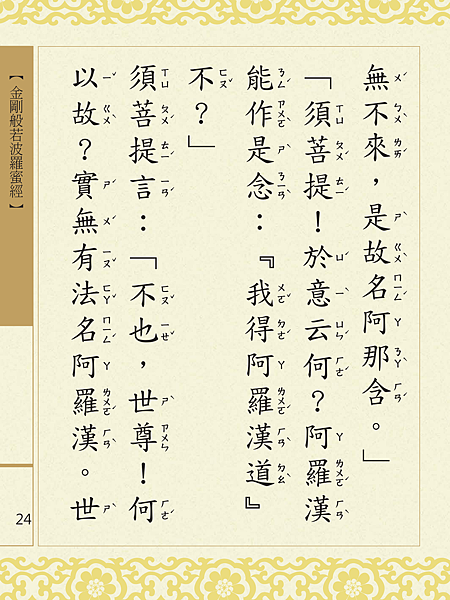 無不來，是故名阿那含。」
「須菩提！於意云何？阿羅漢
能作是念：『我得阿羅漢道』
不？」
須菩提言：「不也，世尊！何
以故？實無有法名阿羅漢。世
【金剛般若波羅蜜經】
24